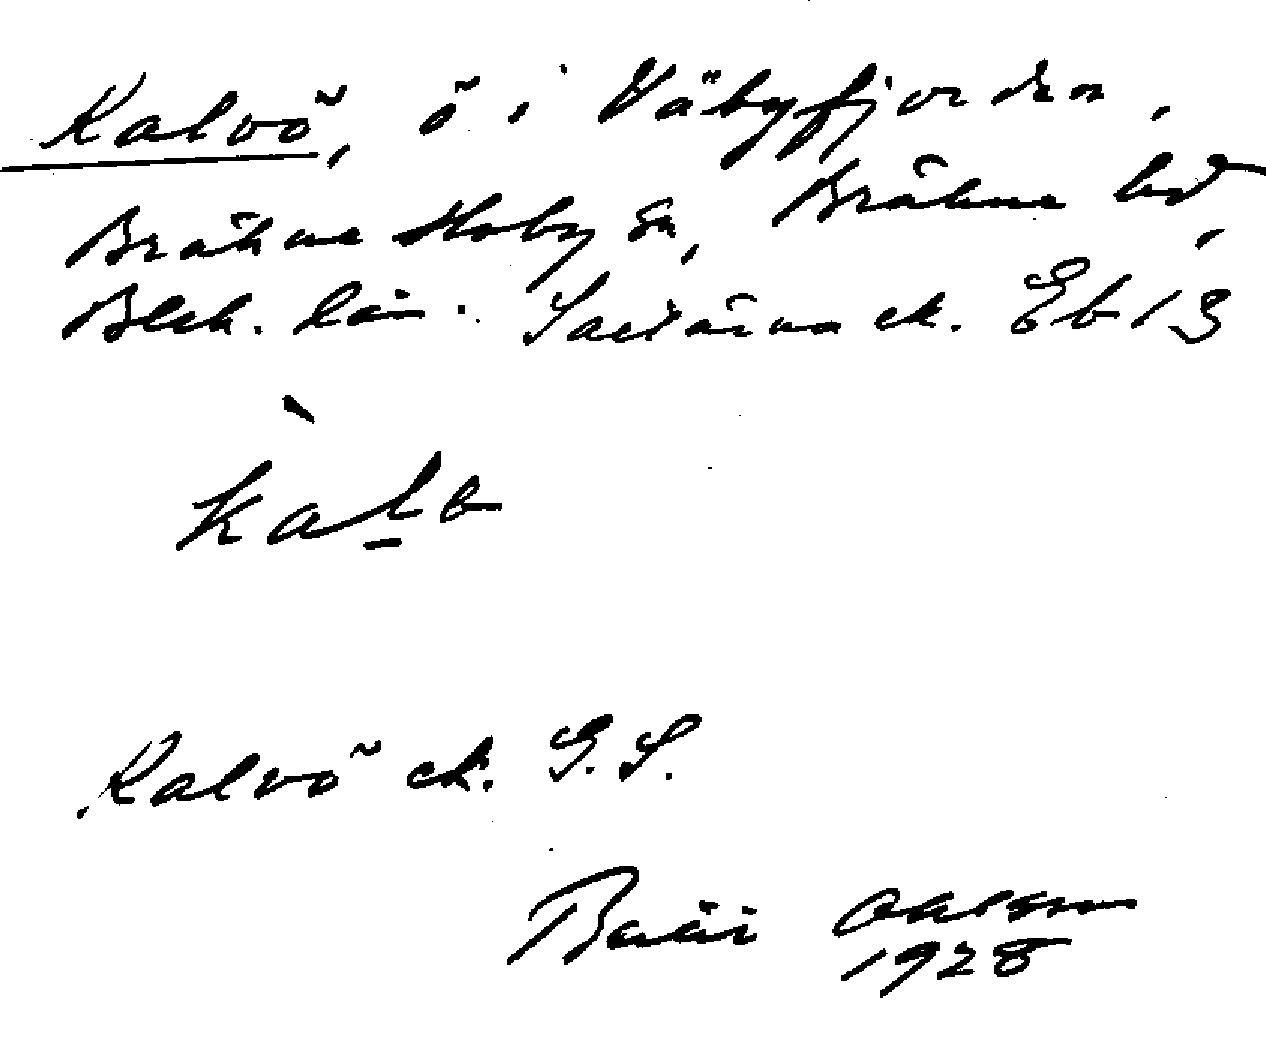 Kalvö, ö i Väbyfjorden,
Bräkne Hoby sn, Bräkne hd,
Blek. län. Saxärna ek. Eb 13
kalo
Kalvö ek. G. S.
Ohlsson
1928